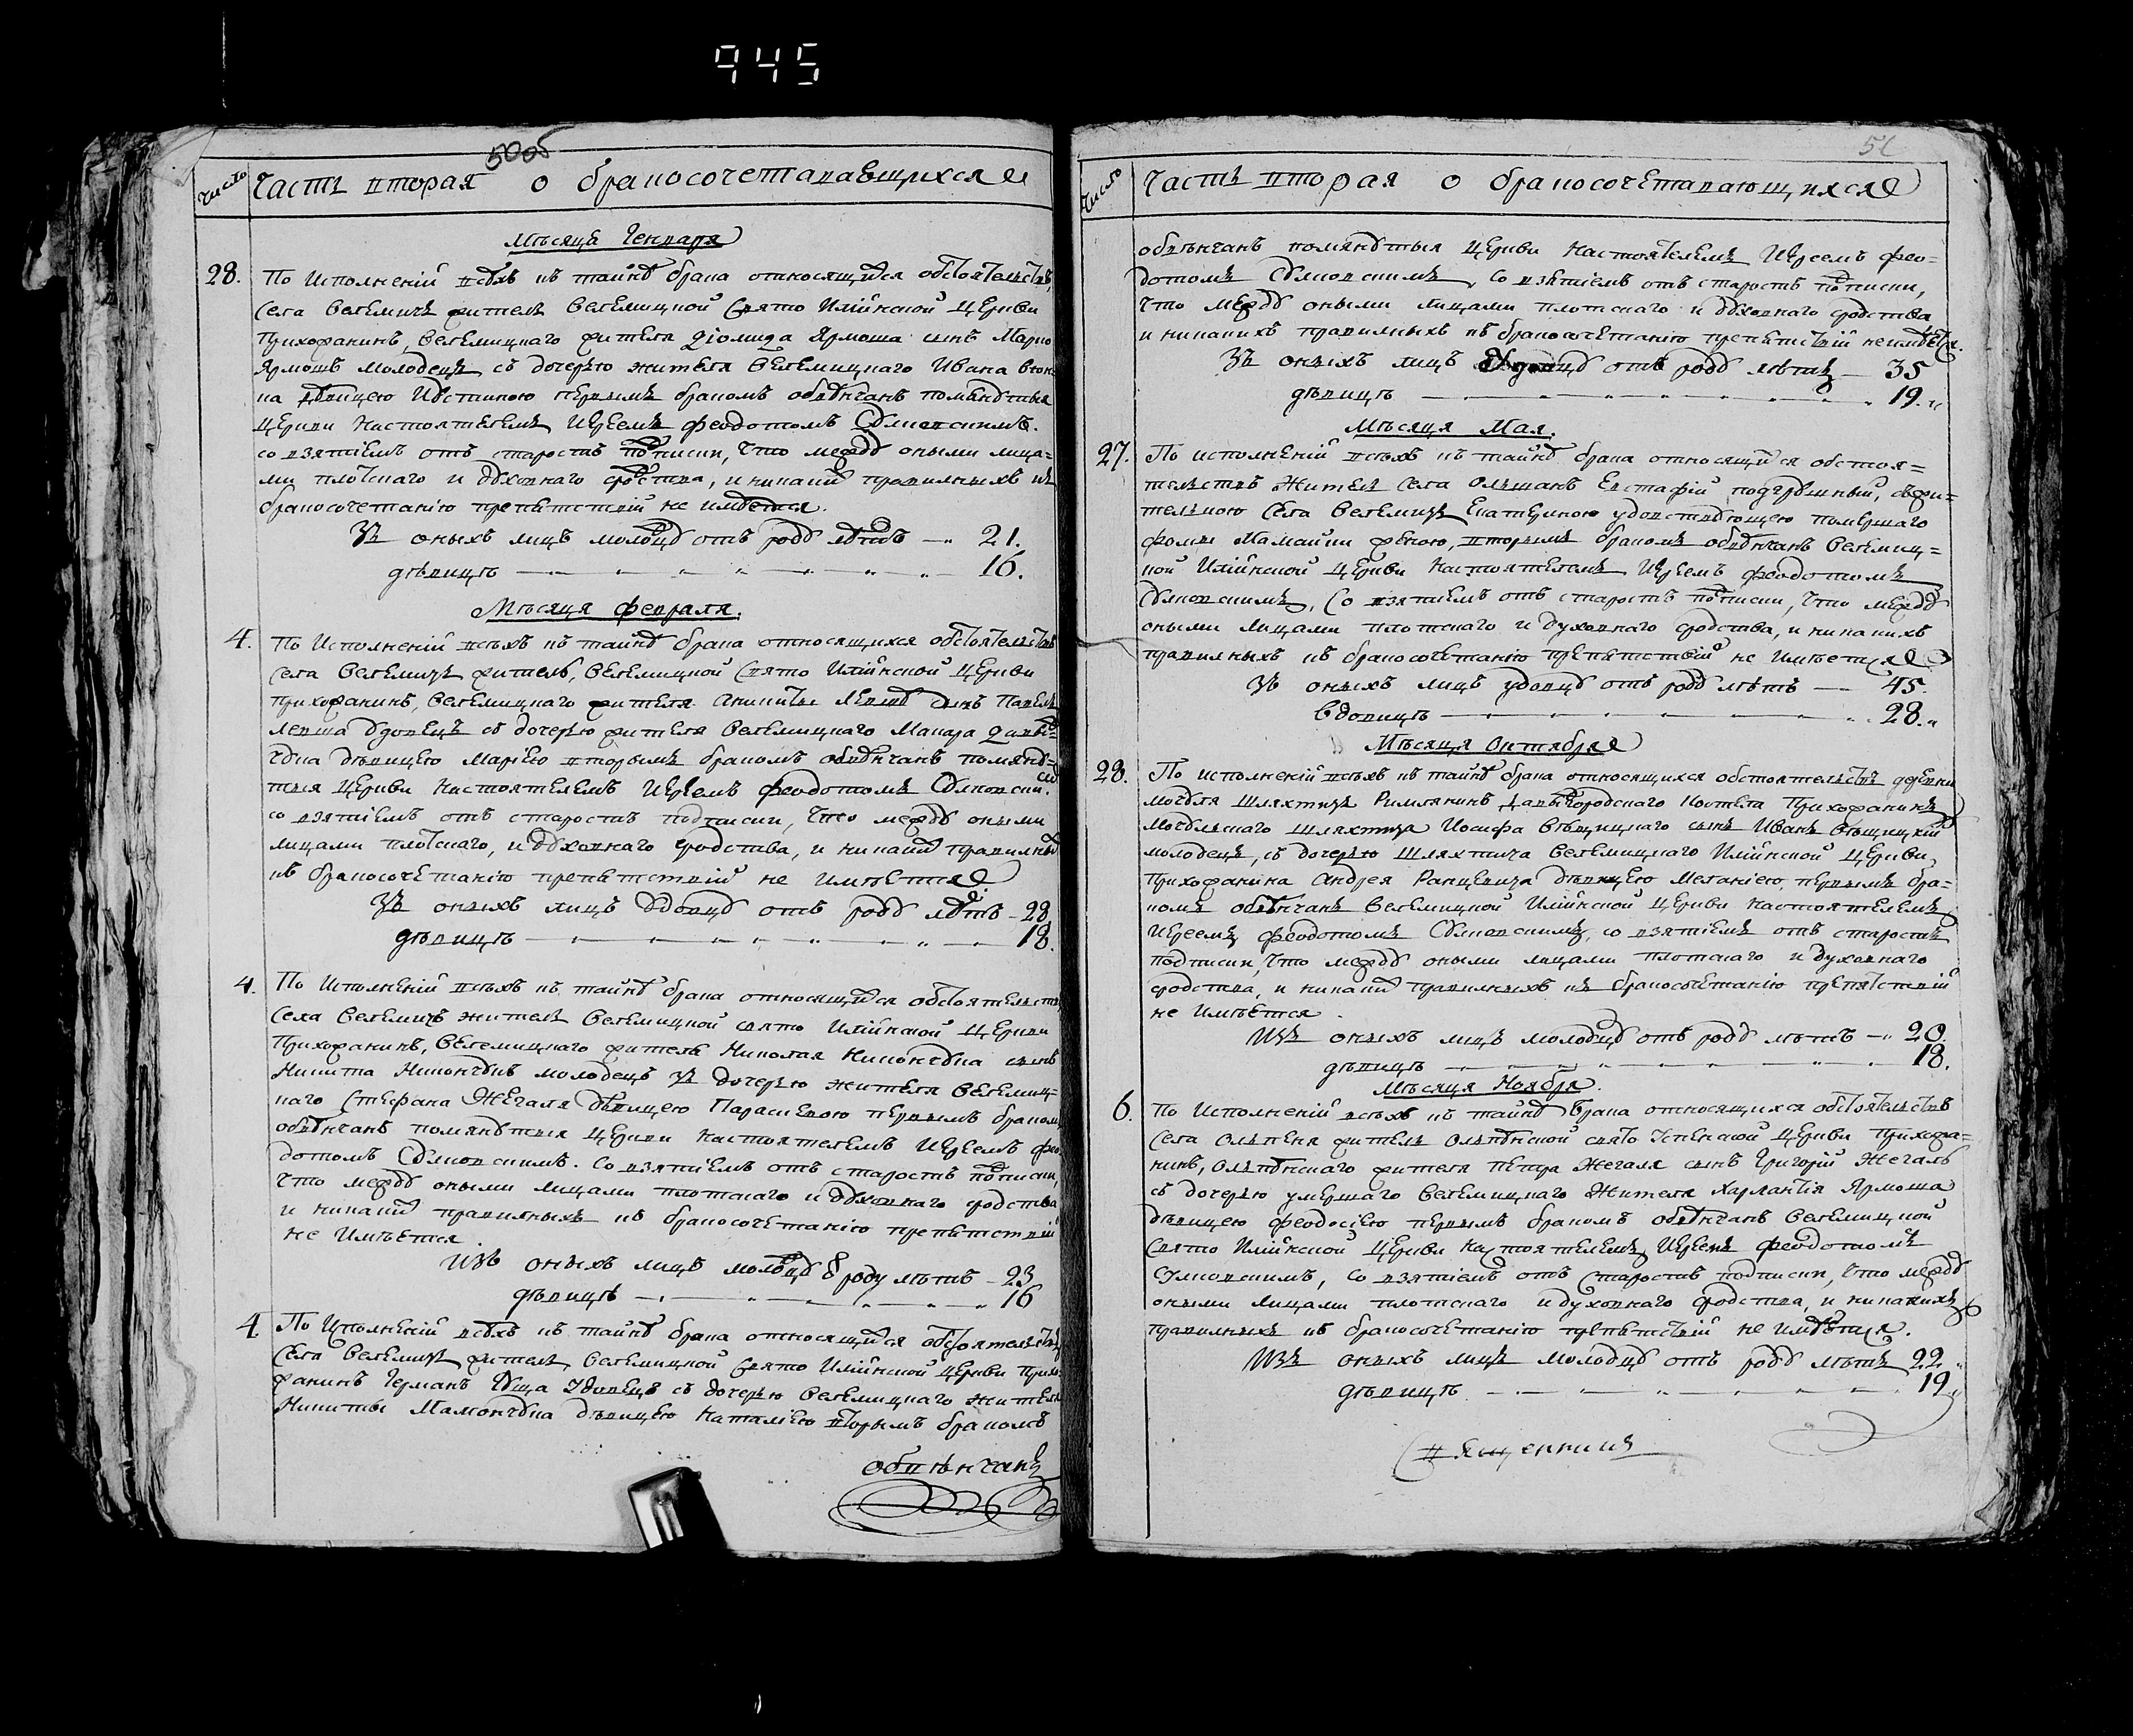 945
50об
Число
Часть вторая о бракосочетавающихся
Мѣсяца Генваря
28. По Исполненій всѣхъ къ тайнѣ брака относящихся обстоятельствъ,
Села Велемичъ житель Велемицкой Свято Илійнской Церкви
Прихожанинъ, Велемицкаго жителя Діомида Ярмоша сынъ Марко
Ярмошъ молодецъ съ дочерью жителя Велемицкаго Ивана
на дѣвицею Иустиною первымъ бракомъ обвѣнчанъ помянутыя
Церкви Настоятелемъ Иереемъ Феодотомъ Сулковскимъ.
со взятіемъ отъ старостъ подписки, что между оными лица=
ми плотскаго и духовнаго сродства, и никакихъ правилныхъ къ
бракосочетанію препятствій не имѣется.
Зъ оныхъ лицъ молодцу отъ роду лѣтъ — 21.
дѣвицѣ — 16.
Мѣсяца Февраля.
4. По Исполненій всѣхъ къ тайнѣ брака относящихся обстоятельствъ
Села Велемичъ житель, Велемицкой Свято Илійнской Церкви
прихожанинъ, Велемицкаго жителя Аникиты Левша сынъ Павелъ
Левша вдовецъ съ дочерью жителя Велемицкаго Макара
чука дѣвицею Маріею вторымъ бракомъ обвѣнчанъ помяну=
тыя Церкви Настоятелемъ Иереемъ Феодотомъ Сулковским.
со взятіемъ отъ старостъ подписки, что между оными
лицами плотскаго, и духовнаго сродства, и никакихъ правилныхъ
къ бракосочетанію препятствій не имѣется.
Зъ оныхъ лицъ вдовцу отъ роду лѣтъ - 28
дѣвицѣ — 18.
4. По Исполненій всѣхъ къ тайнѣ брака относящихся обстоятельствъ
Села Велемичъ житель Велемицкой свято Илійнской Церкви
Прихожанинъ, Велемицкаго житель Николая Никончука сынъ
Никита Никончукъ молодецъ зъ дочерью жителя Велемиц=
каго Стефана Жегаля дѣвицею Параскевою первымъ бракомъ
обвѣнчанъ помянутыя Церкви настоятелемъ Иереемъ Фео
дотомъ Сулковскимъ. Со взятіемъ отъ старостъ подписки,
что между оными лицами плотскаго и духовнаго сродства
и никакихъ правилныхъ къ бракосочетанію препятствій
не имѣется
Изъ оныхъ лицъ молодцу ѿ роду лѣтъ - 23
дѣвицѣ — 16
4. По Исполненій всѣхъ къ тайнѣ брака относящихся обстоятельствъ
Села Велемичъ житель Велемицкой Свято Илійнской Церкви Прихо
жанинъ Германъ вдовецъ съ дочерью Велемицкаго жителя
Никиты Мамончука дѣвицею Наталіею вторымъ бракомъ
обвѣнчанъ
51
Число
Часть вторая о бракосочетавающихся
обвѣнчанъ помянутыя Церкви Настоятелемъ Иереемъ Фео=
дотомъ Сулковскимъ, со взятіемъ отъ старостъ подписки,
что между оными лицами плотскаго и духовнаго сродства
и никакихъ правилныхъ къ бракосочетанію препятствій неимѣется.
Зъ оныхъ лицъ вдовцу отъ роду лѣтъ — 35
дѣвицѣ — 19.
Мѣсяца Мая.
27. По исполненій всѣхъ къ тайнѣ брака относящихся обстоя=
тельствъ Житель Села Ольшанъ Евстафій Подгрушный, съ жи=
тельною Села Велемичъ Екатериною удовствующею помершаго
Фомы Мамайки женою, вторымъ бракомъ обвѣнчанъ Велемиц=
кой Илійнской Церкви Настоятелемъ Иереемъ Феодотомъ
Сулковскимъ, Со взятіемъ отъ старостъ подписки, что между
оными лицами плотскаго и духовнаго сродства, и никакихъ
правилныхъ къ бракосочетанію препятствій не имѣется
Зъ оныхъ лицъ удовцу отъ роду лѣтъ — 45.
вдовицѣ — 28.
Мѣсяца Октября
28. По исполненій всѣхъ къ тайнѣ брака относящихся обстоятельствъ деревни
Мочуля шляхтичъ Римлянинъ Давыдгородскаго Костела Прихожанинъ
Мочульскаго шляхтича Иосифа Вѣщицкаго сынъ Иванъ Вѣщицкій
молодецъ, съ дочерью шляхтича Велемицкаго Илійнской Церкви
Прихожанина Андрея Ранцевича дѣвицею Меланіею, первымъ бра=
комъ обвѣнчанъ Велемицкой Илійнской Церкви Настоятелемъ
Иереемъ Феодотомъ Сулковскимъ, со взятіемъ отъ старостъ
подписки, что между оными лицами плотскаго и духовнаго
сродства, и никакихъ правилныхъ къ бракосочетанію препятствій
не имѣется.
Изъ оныхъ лицъ молодцу отъ роду лѣтъ — 20.
дѣвицѣ — 18.
Мѣсяца Ноября.
6. По Исполненій всѣхъ къ тайнѣ брака относящихся обстоятельствъ
Села Ольпеня житель Ольпѣнской свято Успенской Церкви Прихожа=
нинъ, Ольпѣнскаго жителя Петра Жегаля сынъ Григорій Жегаль
съ дочерью умершаго Велемицкаго Жителя Харлампія Ярмоша
дѣвицею Феодосіею первымъ бракомъ обвѣнчанъ Велемицкой
Свято Илійнской Церкви Настоятелемъ Иереемъ Феодотомъ
Сулковскимъ, со взятіемъ отъ Старостъ подписки, что между
оными лицами плотскаго и духовнаго сродства, и никакихъ
правилныхъ къ бракосочетанію препятствій не имѣется.
Изъ оныхъ лицъ молодцу отъ роду лѣтъ 22
дѣвицѣ — 19
Священникъ